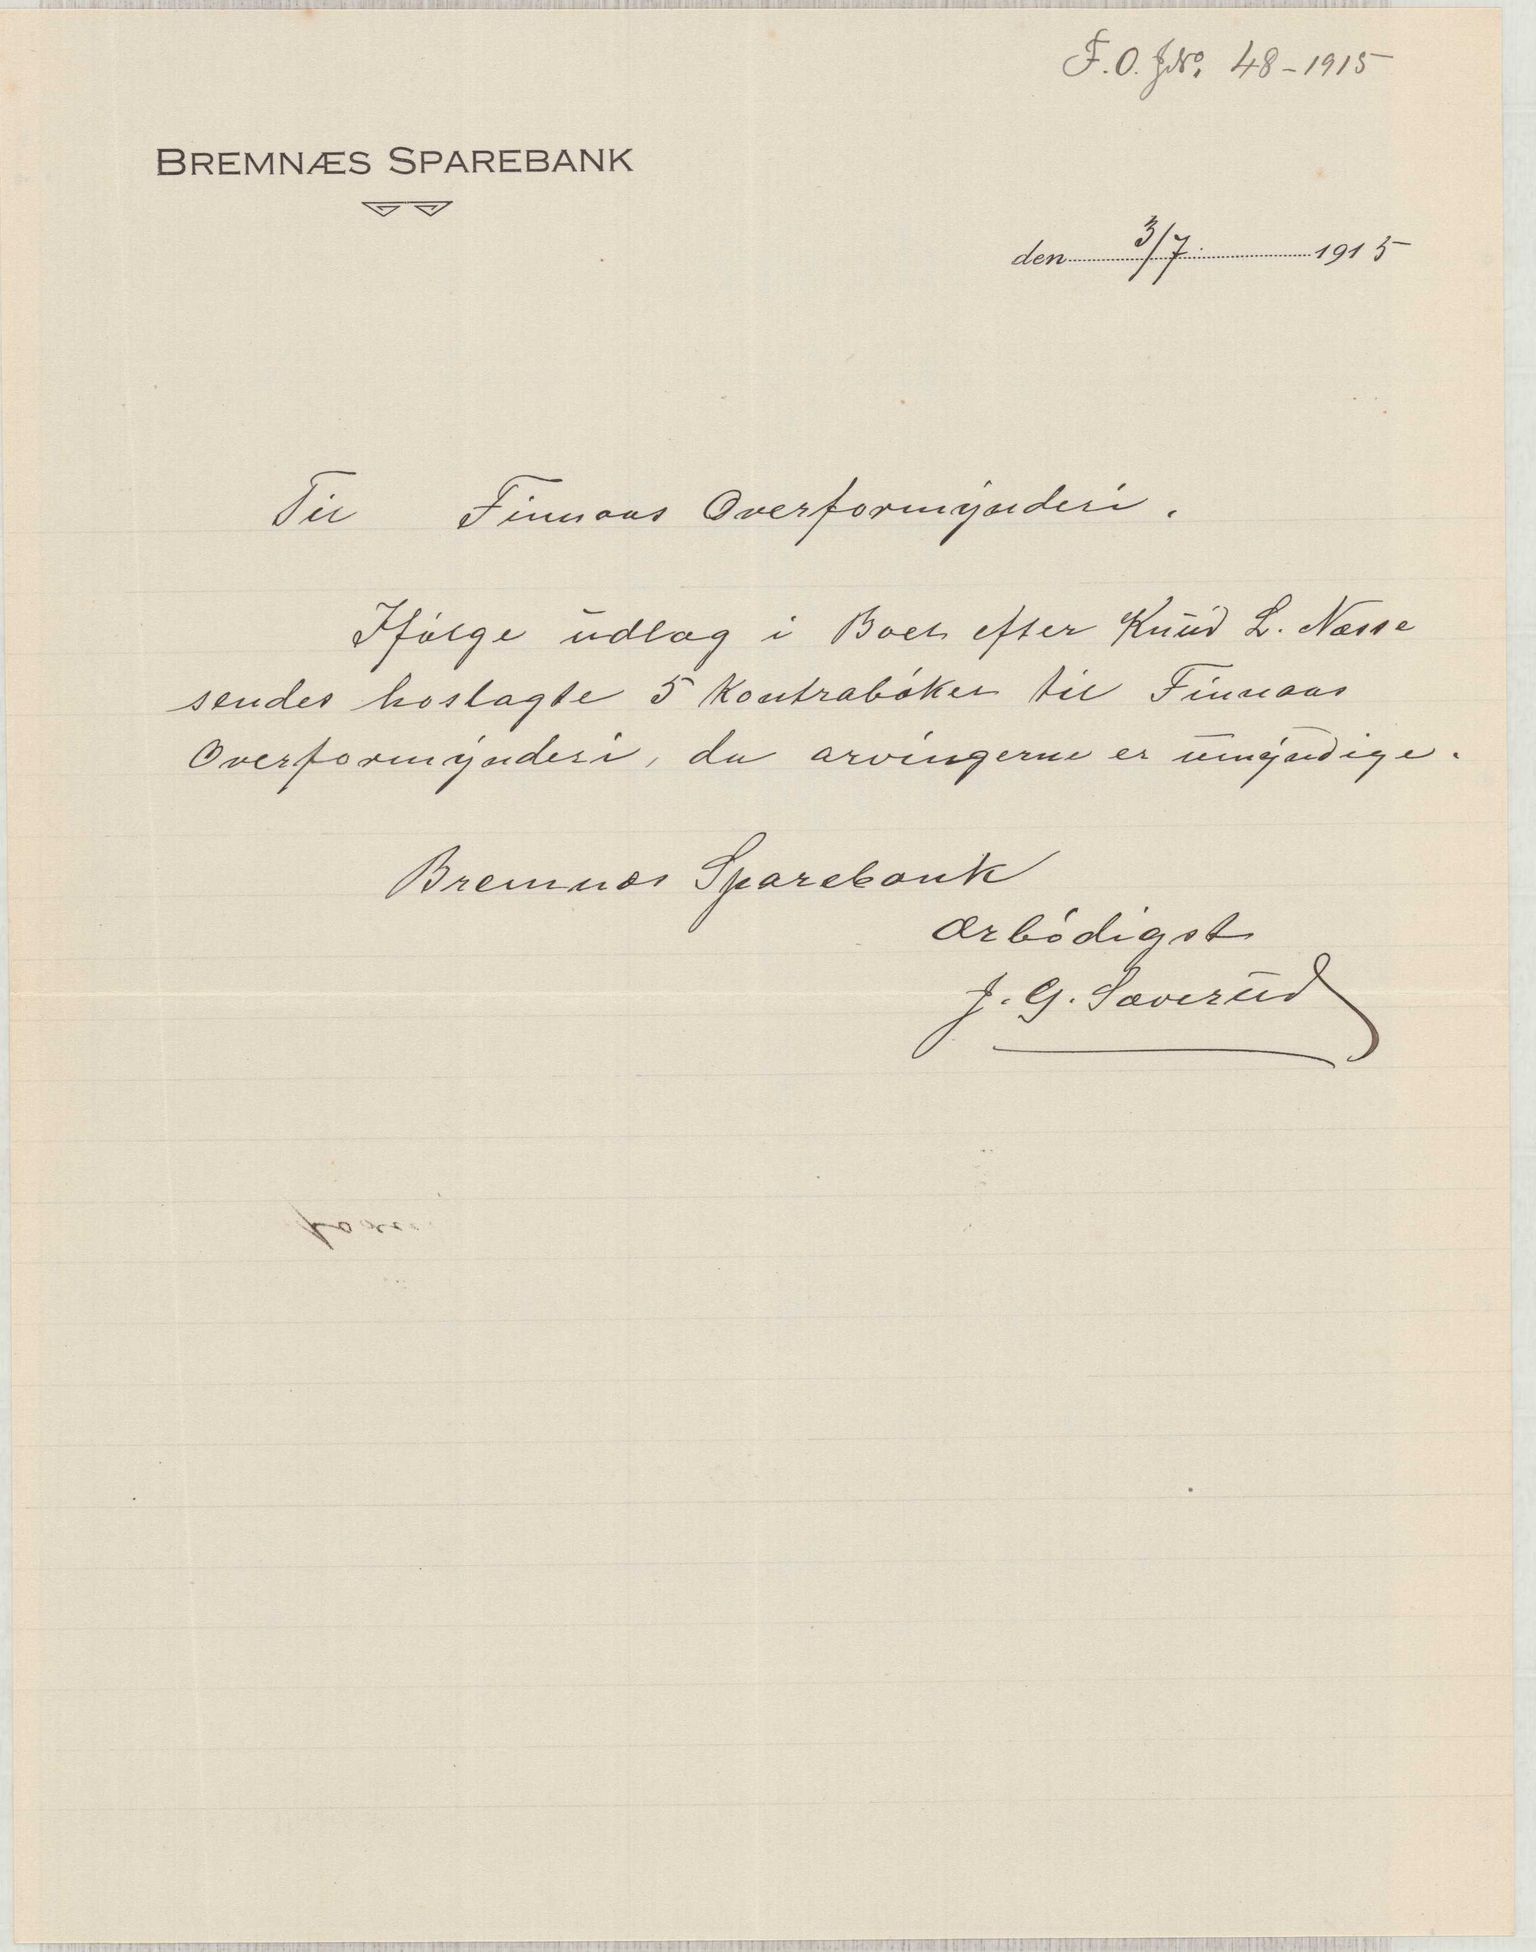 F. O. JNo. 48-1915
BREMNÆS SPAREBANK
den 3/7 1915
Til Finnaas Overformynderi.
Ifølge udlæg i Boet efter Knud L. Næsse
sendes hoslagte 5 Kontrabøker til Finnaas
Overformynderi, da arvingerne er umyndige.
Bremnæs Sparebank
ærbødigst
J. G. Sæverud